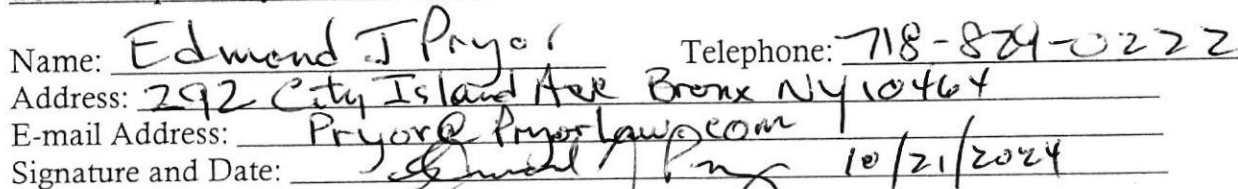 Name: Edmond J Pryor Telephone: 718-829-0222
Address: 292 City Island Ave Bronx NY 10464
E-mail Address: Pryor@Pryorlaw.com
Signature and Date: 10/21/2024